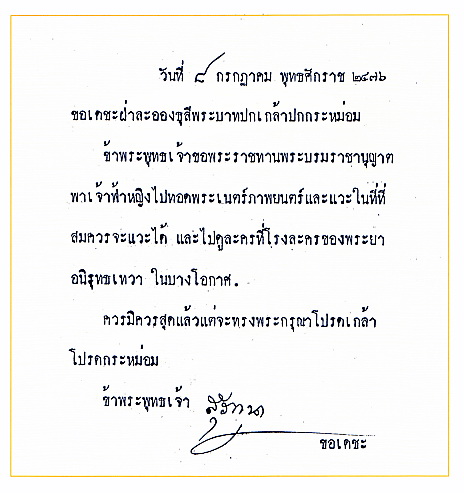 วันที่ ๘ กรกฎาคม พุทธศักราช ๒๔๗๖
ขอเดชะฝ่าละอองธุลีพระบาทปกเกล้าปกกระหม่อม
ข้าพระพุทธเจ้าขอพระราชทานพระบรมราชานุญาต
พาเจ้าฟ้าหญิงไปทอดพระเนตร์ภาพยนตร์และแวะในที่ที่
สมควรจะแวะได้ และไปดูละครที่โรงละครของพระยา
อนิรุทธเทวา ในบางโอกาศ.
ควรมิควรสุดแล้วแต่จะทรงพระกรุณาโปรดเกล้า
โปรดกระหม่อม
ข้าพระพุทธเจ้า สุวัทนา
ขอเดชะ